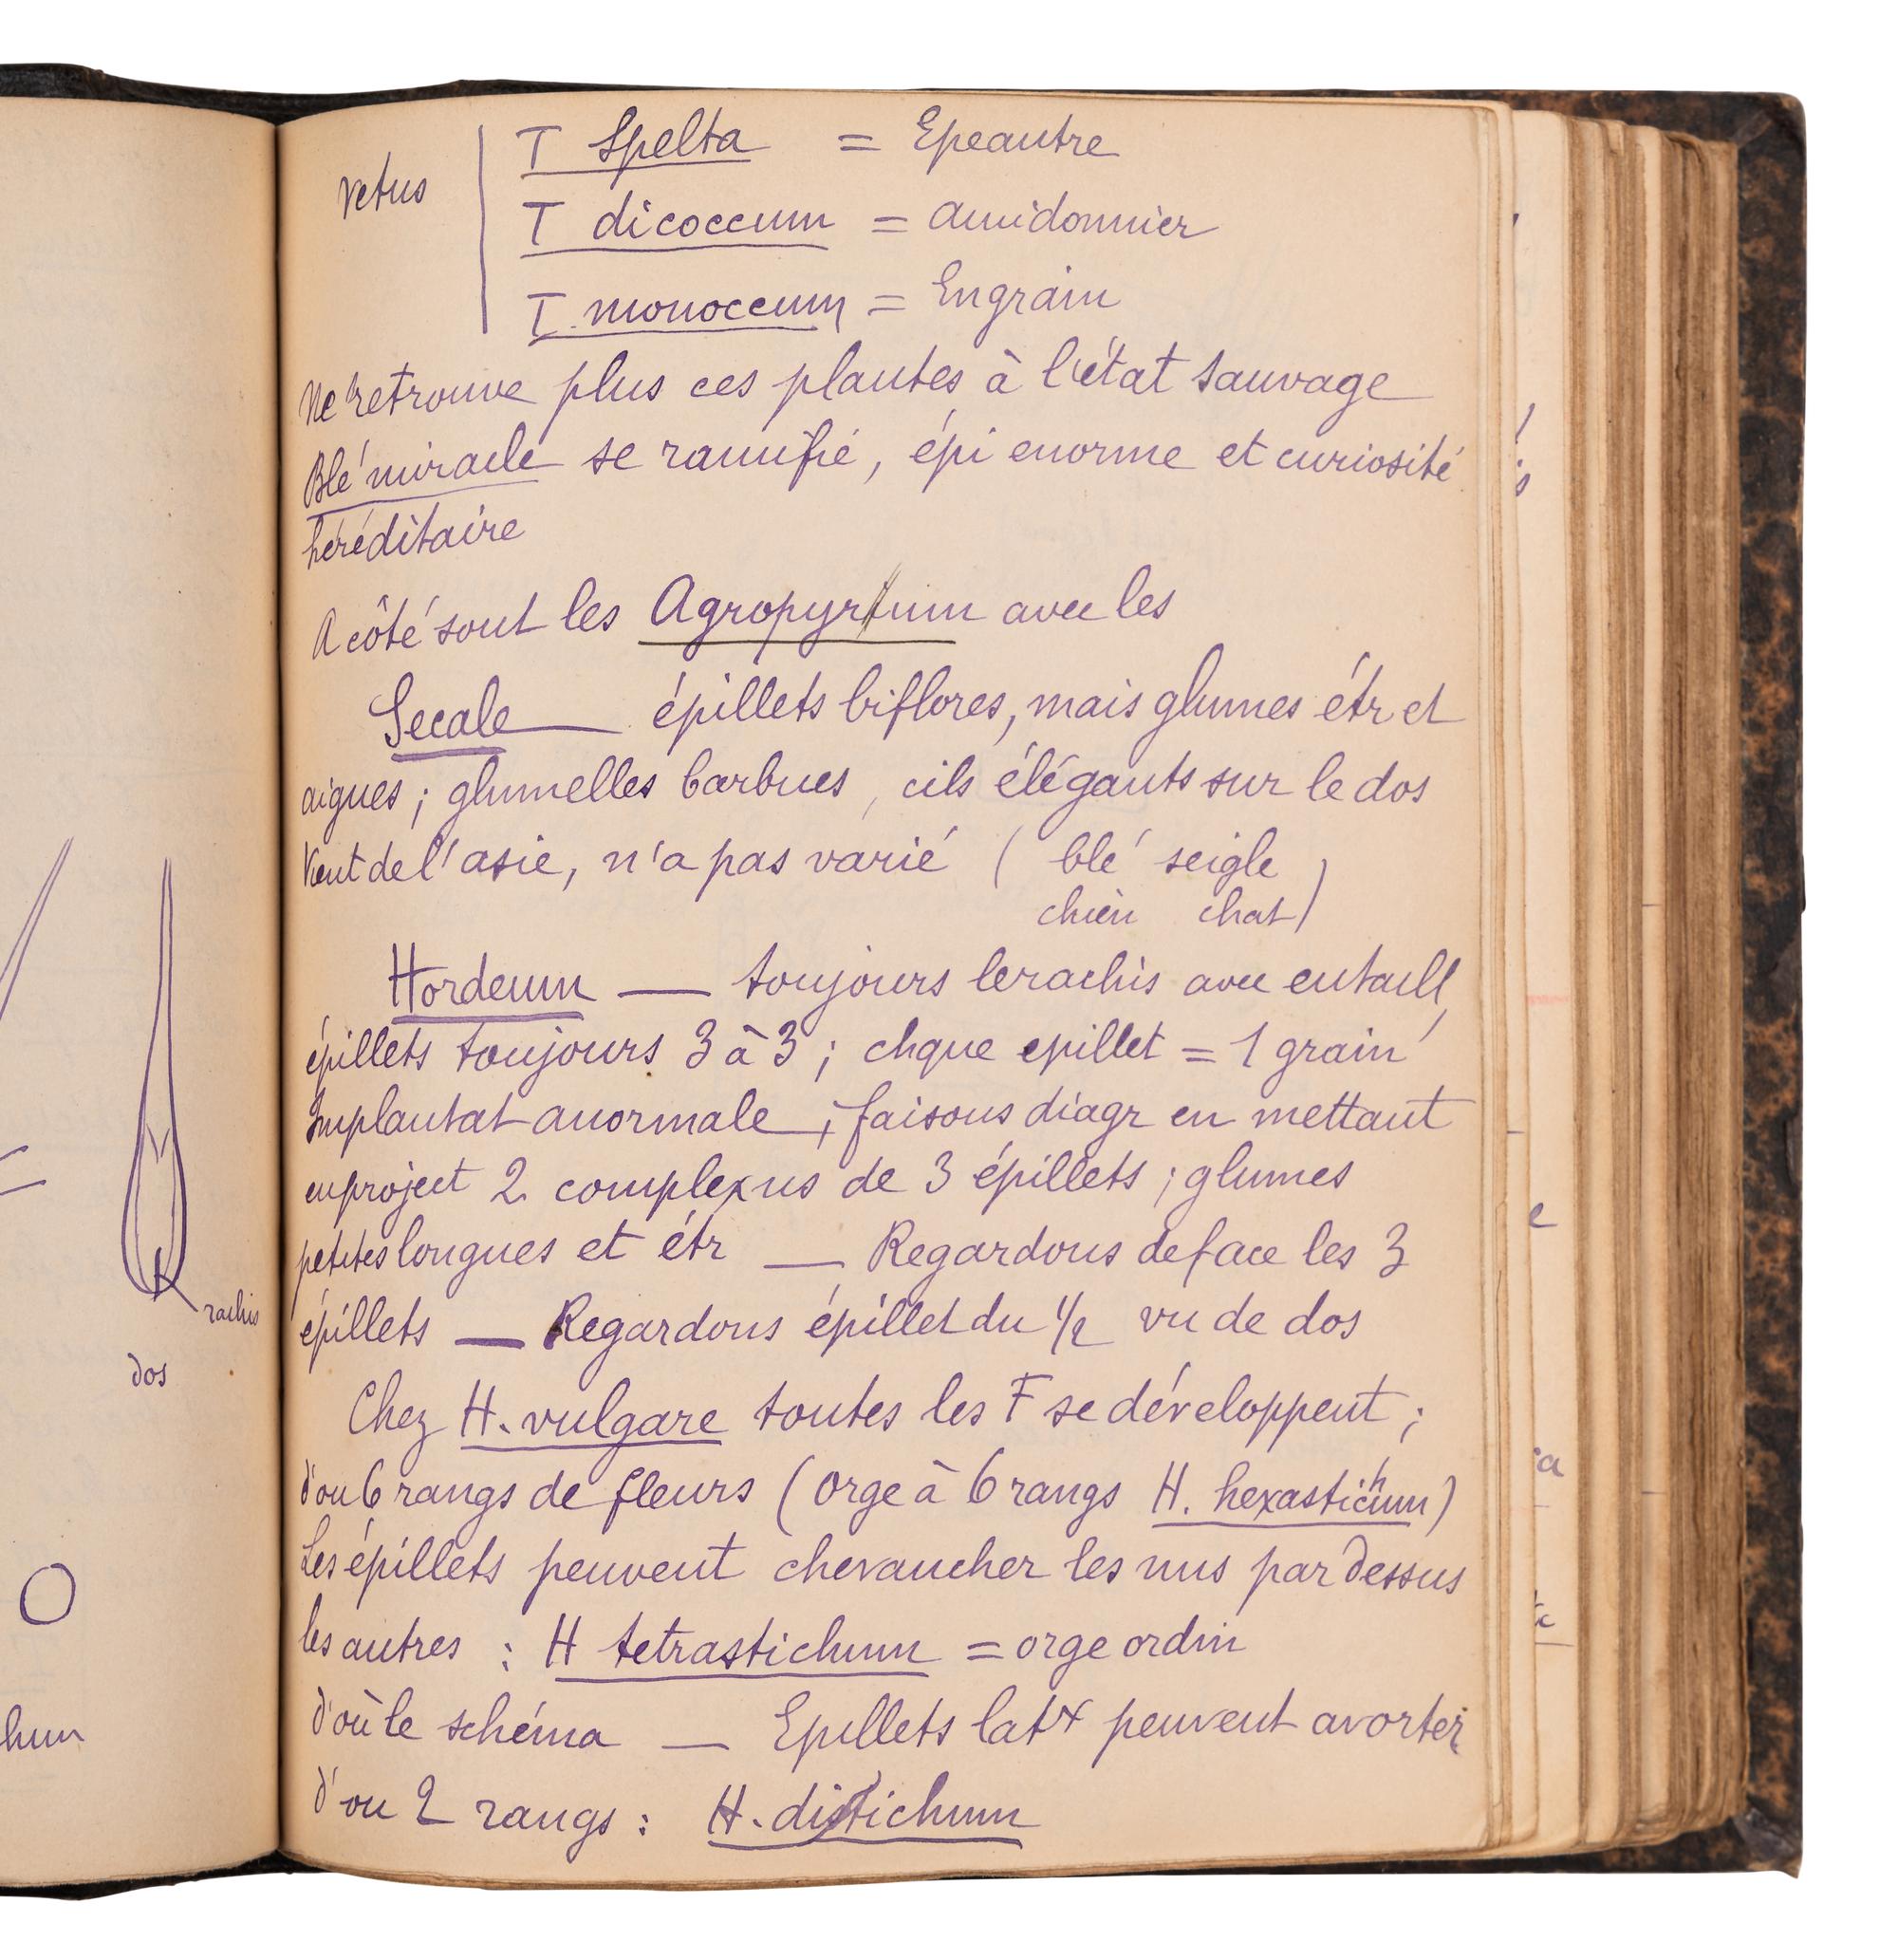 rachis
dos
hum
vetus
T Spelta = Epeautre
T dicoccum = amidonnier
T. monoccum = Engrain
Ne retrouve plus ces plantes à l'état sauvage
Blé miracle se ramifié, épi enorme et curiosité
héréditaire
A côté sont les Agropyrum avec les
Secale — épillets biflores, mais glumes étr et
aigues ; glumelles barbues, cils élégants sur le dos
Vient de l'asie, n'a pas varié ( blé seigle
chien chat )
Hordeum — toujours le rachis avec entaill
épillets toujours 3 à 3 ; chque epillet = 1 grain
Implantat anormale ; faisons diagr en mettant
en project 2 complexus de 3 épillets ; glumes
petites longues et étr — Regardons de face les 3
épillets — Regardons épillet du 1/2 vu de dos
Chez H. vulgare toutes les F se développent ;
d'ou 6 rangs de fleurs (orge à 6 rangs H. hexastichum)
Les épillets peuvent chevaucher les uns par dessus
les autres : H tetrastichum = orge ordin
d'où le schéma — Epillets latx peuvent avorter
d'ou 2 rangs : H. distichum